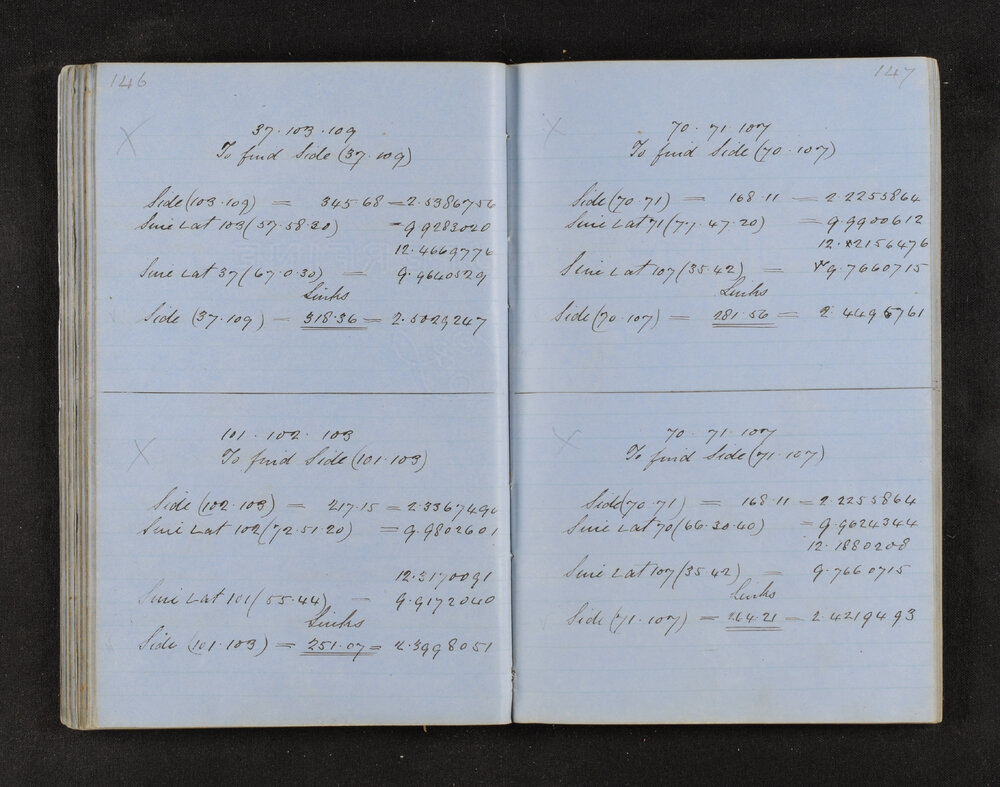 146
37.103.109
To find Side (37.109)
Side (103.109) = 345.68 = 2.5386756
Sine Lat 103 (57.58.30) = 9.9283020
12.4669776
Sine Lat 37 (67.0.30) = 9.9640529
Links
Side (37.109) = 318.36 = 2.5029247
101.102.103
To find Side (101.103)
Side (102.103) = 217.15 = 2.3367490
Sine Lat 102 (72.51.20) = 9.9802601
12.3170091
Sine Lat 101 (55.44) = 9.9172040
Links
Side (101.103) = 251.07 = 2.3998051
147
70.71.107
To find Side (70.107)
Side (70.71) = 168.11 = 2.2255864
Sine Lat 71 (77.47.20) = 9.9900612
12.2156476
Sine Lat 107 (35.42) = 9.7660715
Links
Side (70.107) = 281.56 = 2.4495761
70.71.107
To find Side (71.107)
Side (70.71) = 168.11 = 2.2255864
Sine Lat 70 (66.30.40) = 9.9624344
12.1880208
Sine Lat 107 (35.42) = 9.7660715
Links
Side (71.107) = 264.21 = 2.4219493